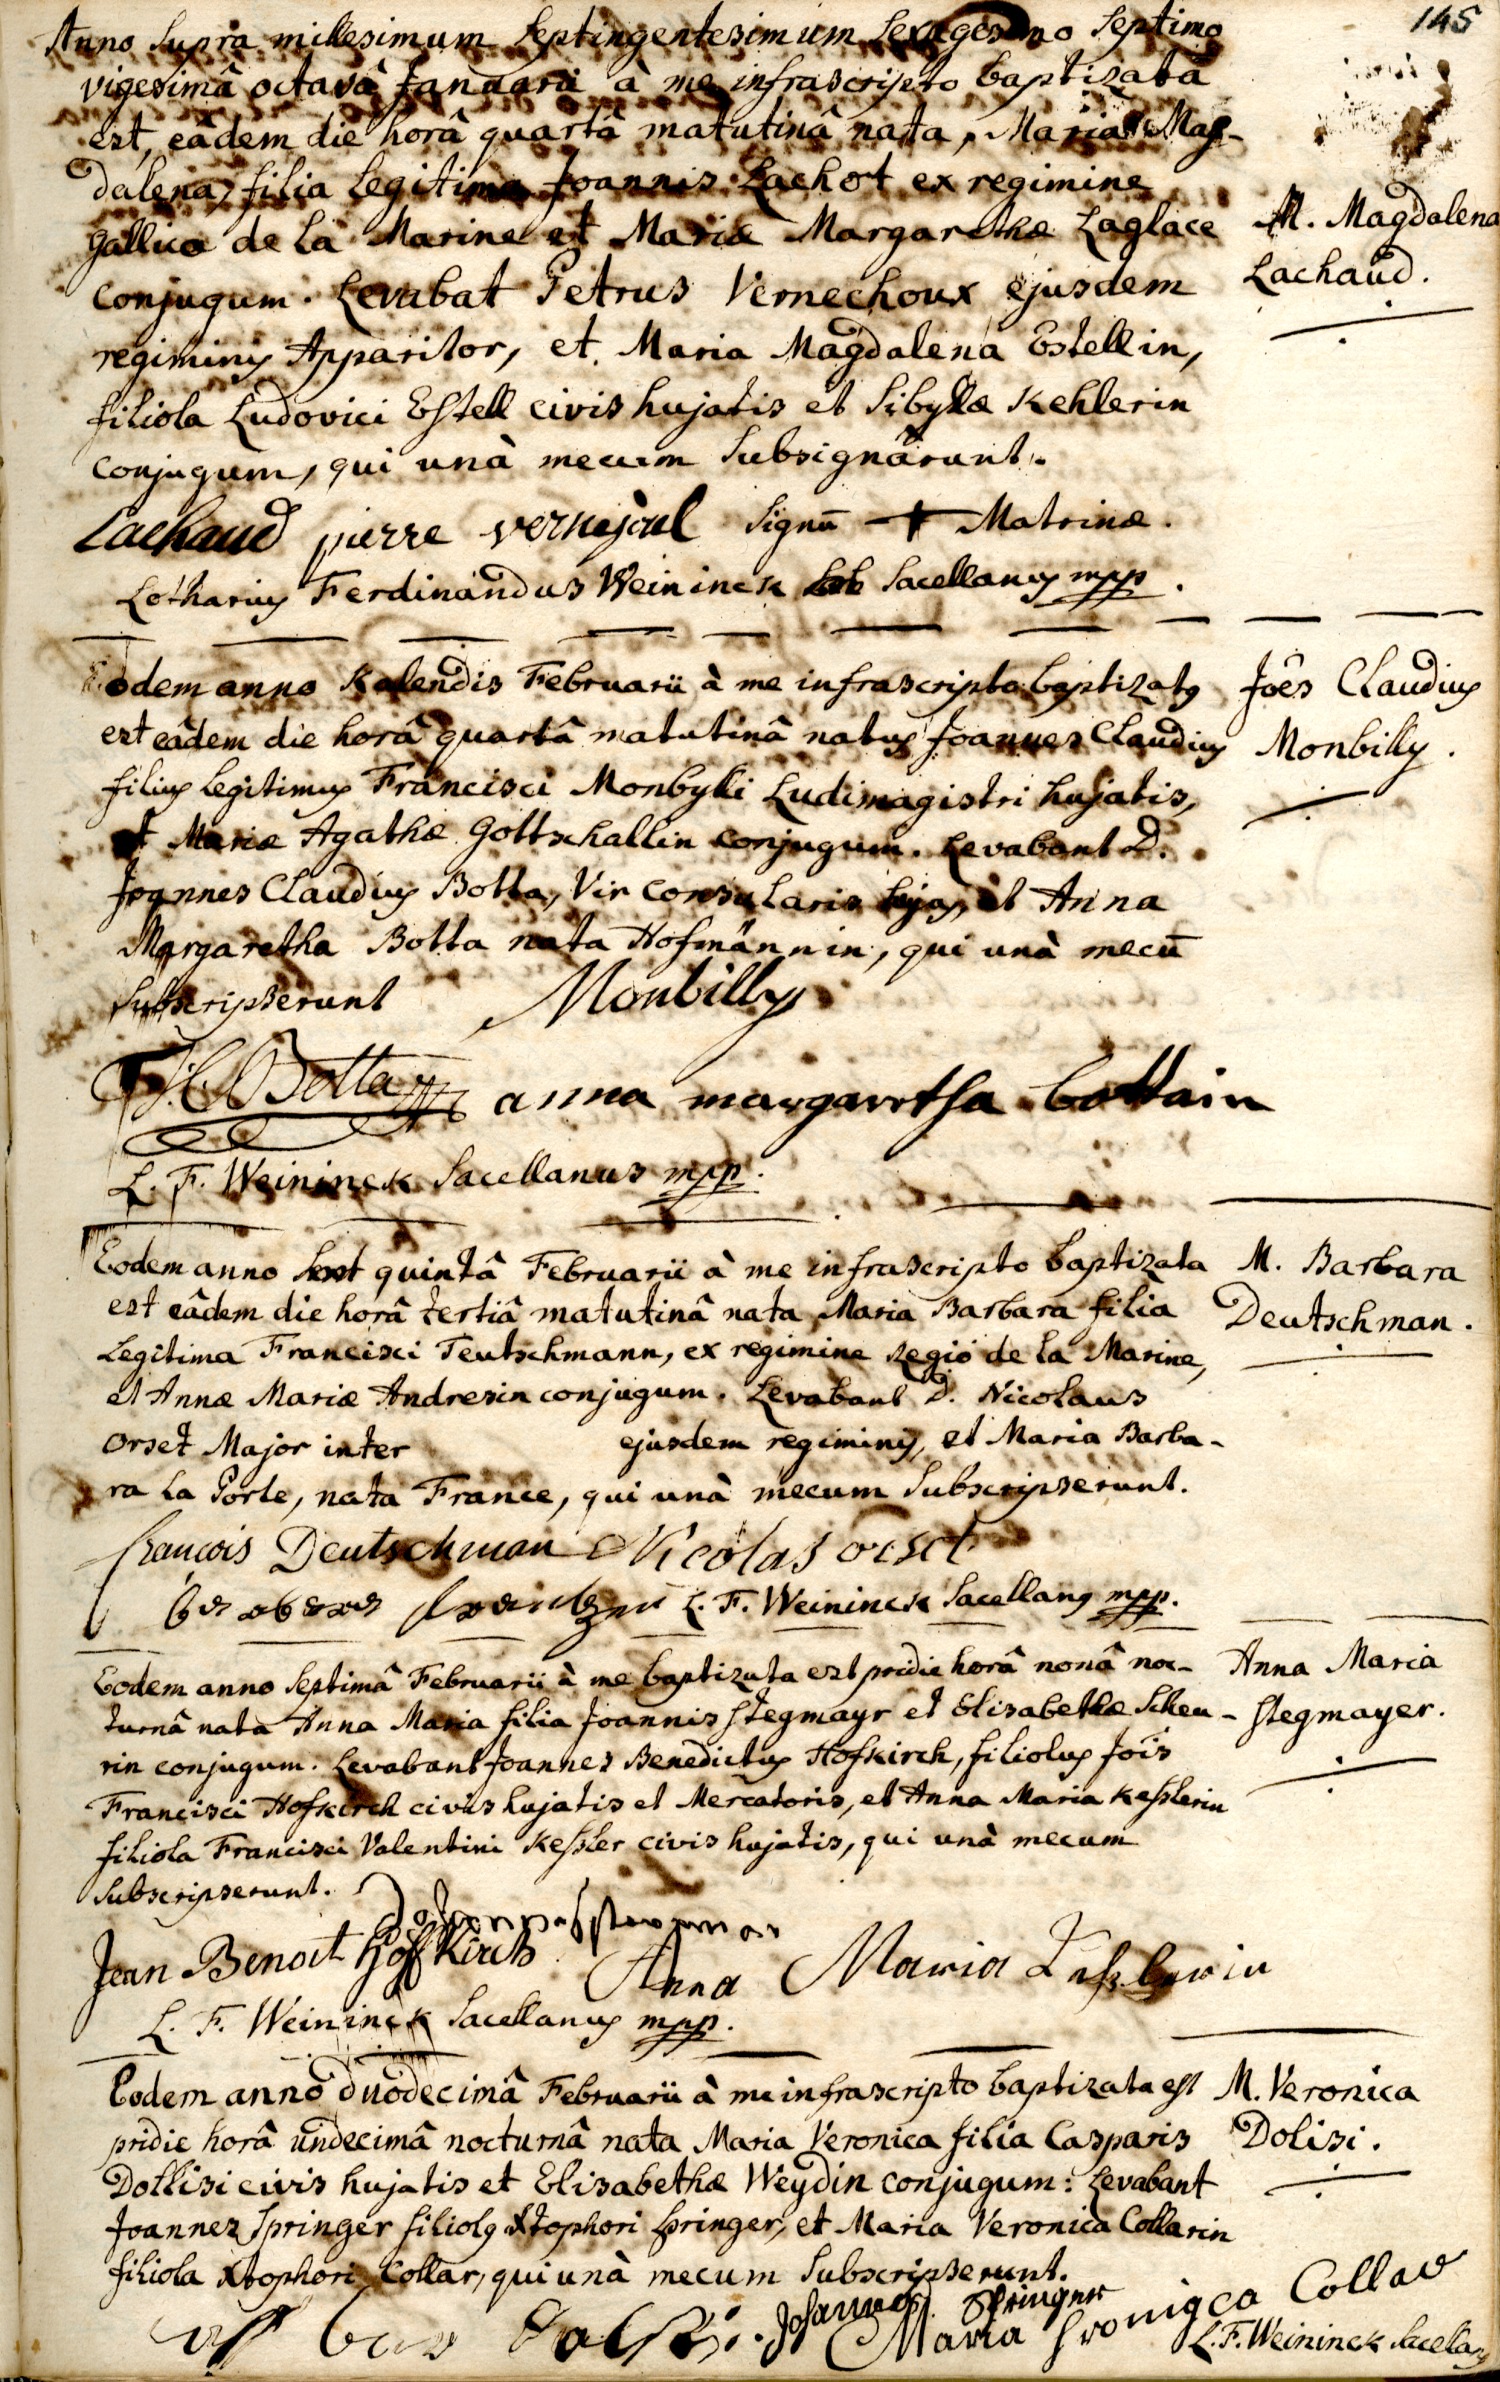 145
Anno supra millesimum septingentesimum sexagesimo septimo
vigesimâ octavâ Januarii à me infrascripto baptizata
est, eâdem die horâ quartâ matutinâ nata, Maria Mag-
dalena, filia legitima Joannis Lachot ex regimine
gallico de la Marine et Mariæ Margarethæ Laglace
conjugum. Levabat Petrus Vernechoux ejusdem
regiminis Apparitor, et Maria Magdalena Estellin,
filiola Ludovici Estell civis hujatis et Sibyllæ Kehlerin
conjugum, qui unà mecum subsignârunt.
M. Magdalena
Lachaud.
Lachaud pierre vernejoul signū + Matrinæ.
Lotharius Ferdinandus Weininck Sacellanus mpp.
Eodem anno Kalendis Februarii à me infrascripto baptizatus
est eâdem die horâ quartâ matutinâ natus Joannes Claudius
filius legitimus Francisci Monbylli Ludimagistri hujatis,
et Mariæ Agathæ Gottschallin conjugum. Levabant D.
Joannes Claudius Botta, Vir consularis hujas, et Anna
Margaretha Botta nata Hofmännin, qui unà mecū
subscripserunt Monbilly
Joês Claudius
Monbilly.
J. C. Botta anna margaretha bottain
L. F. Weininck Sacellanus mpp.
Eodem anno quintâ Februarii à me infrascripto baptizata
est eâdem die horâ tertiâ matutinâ nata Maria Barbara filia
Legitima Francisci Teutschmann, ex regimine regio de la Marine,
et Annæ Mariæ Andresin conjugum. Levabant D. Nicolaus
Orset Major inter ejusdem regiminis, et Maria Barba-
ra la Porte, nata France, qui unà mecum subscripserunt.
M. Barbara
Deutschman.
françois Deutschman Nicolas orset
L. F. Weininck Sacellanus mpp.
Eodem anno septimâ Februarii à me baptizata est pridie horâ nonâ noc-
turnâ nata Anna Maria filia Joannis Stegmayr et Elisabethæ Scheu-
rin conjugum. Levabant Joannes Benedictus Hofkirch, filiolus Jois
Francisci Hofkirch civis hujatis et Mercatoris, et Anna Maria Kesslerin
filiola Francisci Valentini Kessler civis hujatis, qui unà mecum
subscripserunt.
Anna Maria
Stegmayer.
Jean Benoit Hoffkirch Anna Maria Kesslerin
L. F. Weininck Sacellanus mpp.
Eodem anno duodecimâ Februarii à me infrascripto baptizata est
pridie horâ undecimâ nocturnâ nata Maria Veronica filia Casparis
Dollisi civis hujatis et Elisabethæ Weydin conjugum: Levabant
Joannes Springer filiolus Xtophori Springer, et Maria Veronica Collarin
filiola Xtophori Collar, qui unà mecum subscripserunt.
M. Veronica
Dolisi.
Johannes Springer
Maria fronigca Collar
L. F. Weininck Sacellanus